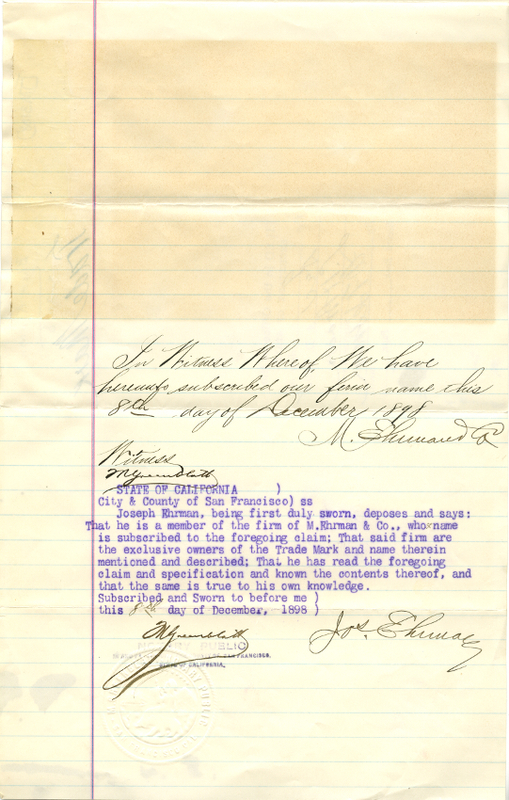 In Witness Whereof, We have
hereunto subscribed our firm name this
8th day of December 1898
M. Ehrman & Co
Witness
M Greenblatt
STATE OF CALIFORNIA )
City & County of San Francisco) ss
Joseph Ehrman, being first duly sworn, deposes and says:
That he is a member of the firm of M.Ehrman & Co., who name
is subscribed to the foregoing claim; That said firm are
the exclusive owners of the Trade Mark and name therein
mentioned and described; That he has read the foregoing
claim and specification and known the contents thereof, and
that the same is true to his own knowledge.
Subscribed and Sworn to before me )
this 8th day of December, 1898 )
M Greenblatt
Jos. Ehrman
NOTARY PUBLIC
SAN FRANCISCO,
STATE OF CALIFORNIA.